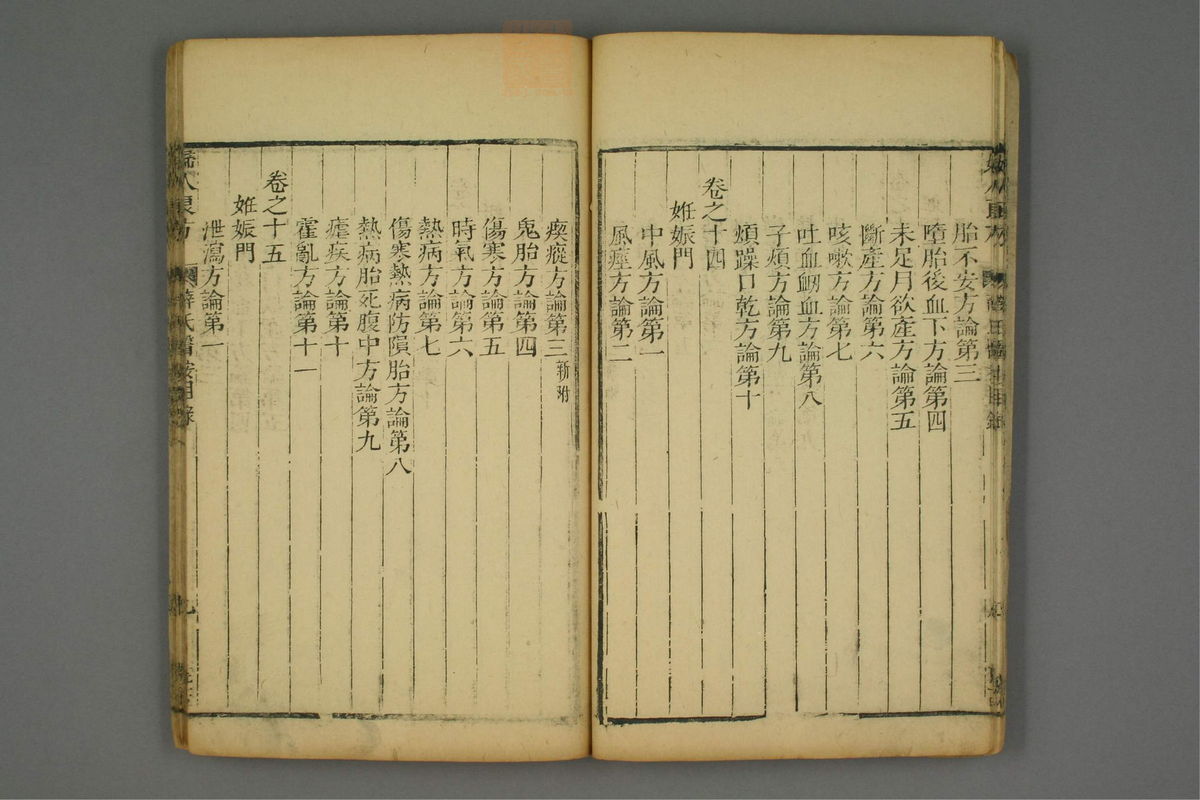 胎不安方論第三
墮胎後血下方論第四
未足月欲產方論第五
斷產方論第六
咳嗽方論第七
吐血衂血方論第八
子煩方論第九
煩躁口乾方論第十
卷之十四
姙娠門
中風方論第一
風痙方論第二
瘈瘲方論第三新附
鬼胎方論第四
傷寒方論第五
時氣方論第六
熱病方論第七
傷寒熱病防隕胎方論第八
熱病胎死腹中方論第九
瘧疾方論第十
霍亂方論第十一
卷之十五
姙娠門
泄瀉方論第一
人良方 薛氏醫按目錄